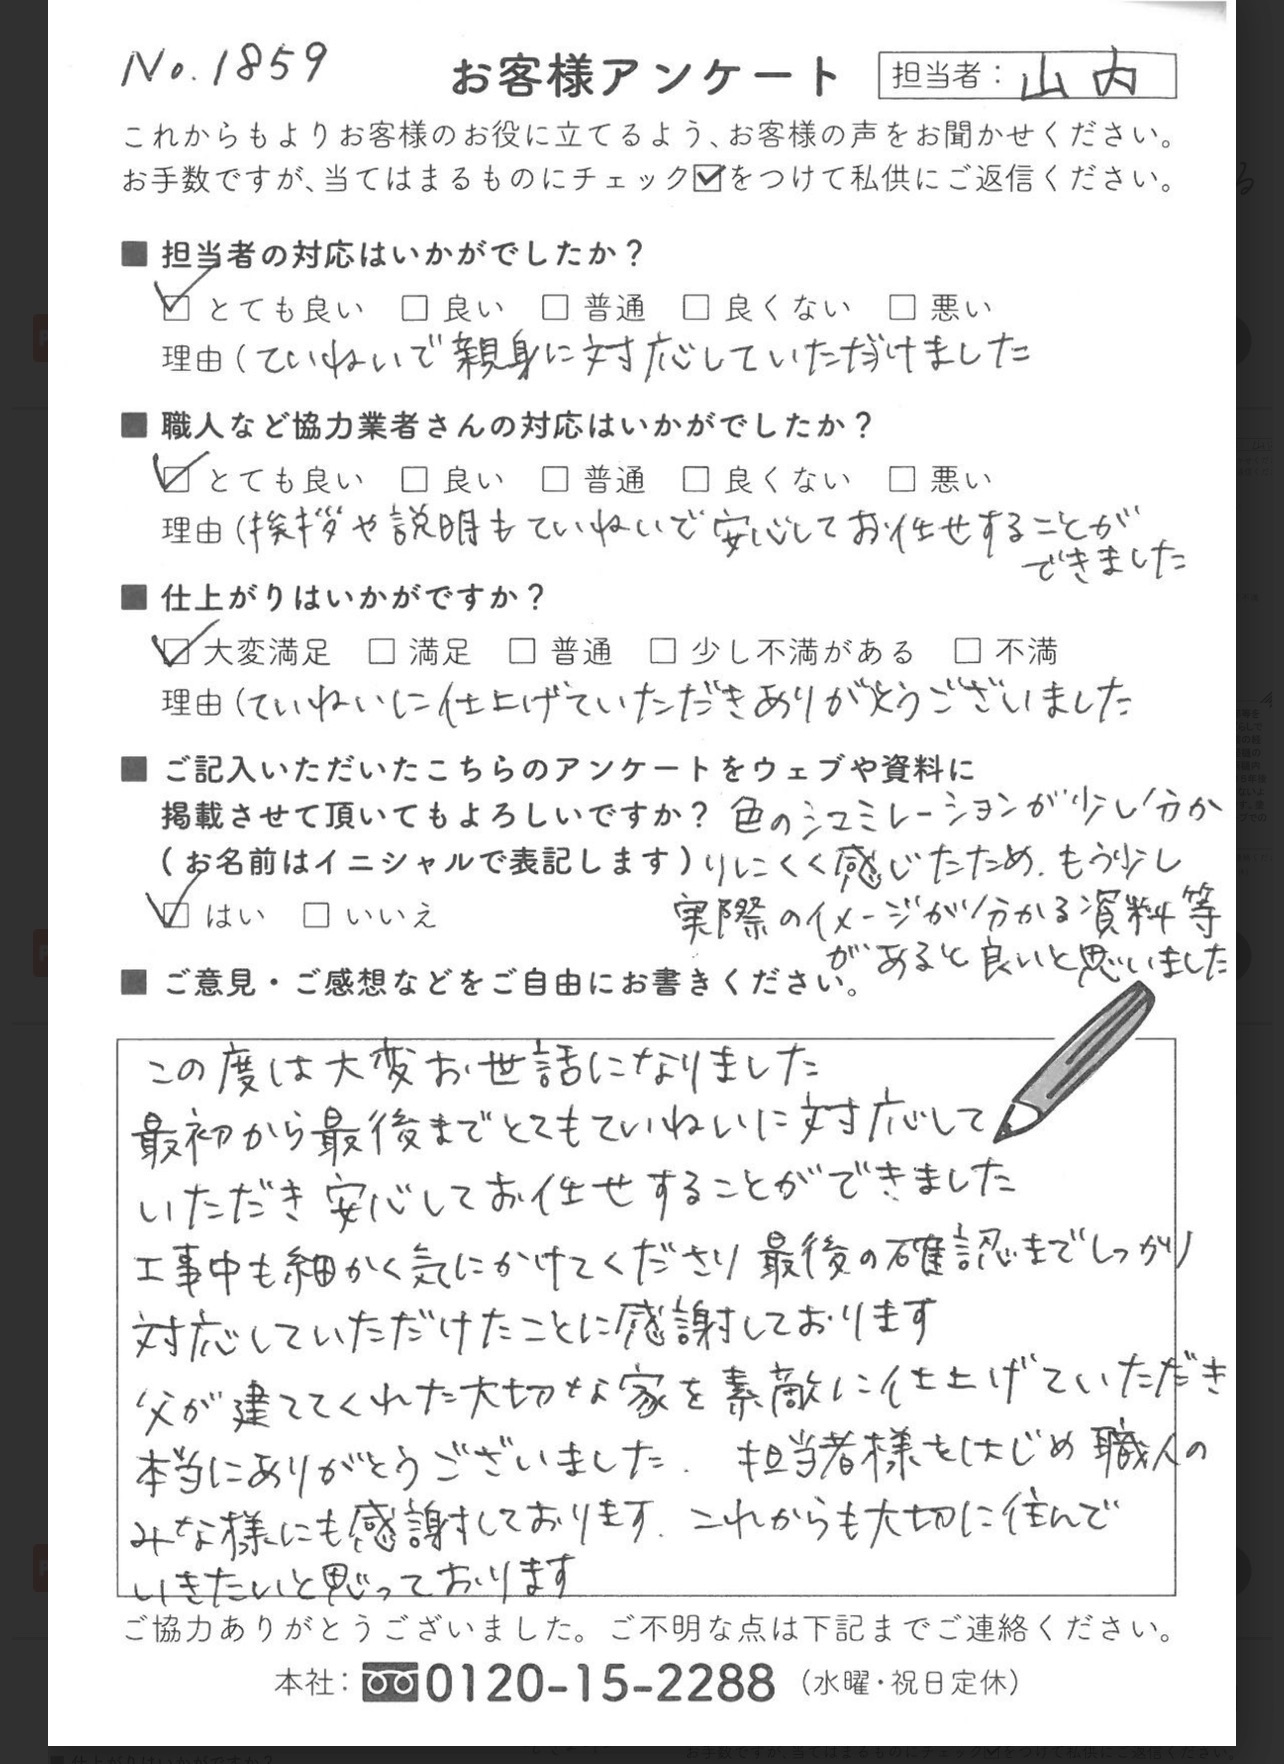 No.1859
お客様アンケート
担当者：山内
これからもよりお客様のお役に立てるよう、お客様の声をお聞かせください。
お手数ですが、当てはまるものにチェック☑をつけて私供にご返信ください。
■ 担当者の対応はいかがでしたか？
☑ とても良い □ 良い □ 普通 □ 良くない □ 悪い
理由（ていねいで親身に対応していただけました
■ 職人など協力業者さんの対応はいかがでしたか？
☑ とても良い □ 良い □ 普通 □ 良くない □ 悪い
理由（挨拶や説明もていねいで安心してお任せすることが
できました
■ 仕上がりはいかがですか？
☑ 大変満足 □ 満足 □ 普通 □ 少し不満がある □ 不満
理由（ていねいに仕上げていただきありがとうございました
■ ご記入いただいたこちらのアンケートをウェブや資料に
掲載させて頂いてもよろしいですか？
（お名前はイニシャルで表記します）
☑ はい □ いいえ
色のシュミレーションが少し分か
りにくく感じたため、もう少し
実際のイメージが分かる資料等
があると良いと思いました
■ ご意見・ご感想などをご自由にお書きください。
この度は大変お世話になりました
最初から最後までとてもていねいに対応して
いただき安心してお任せすることができました
工事中も細かく気にかけてくださり最後の確認までしっかり
対応していただけたことに感謝しております
父が建ててくれた大切な家を素敵に仕上げていただき
本当にありがとうございました. 担当者様をはじめ職人の
みな様にも感謝しております. これからも大切に住んで
いきたいと思っております
ご協力ありがとうございました。ご不明な点は下記までご連絡ください。
本社：0120-15-2288（水曜・祝日定休）